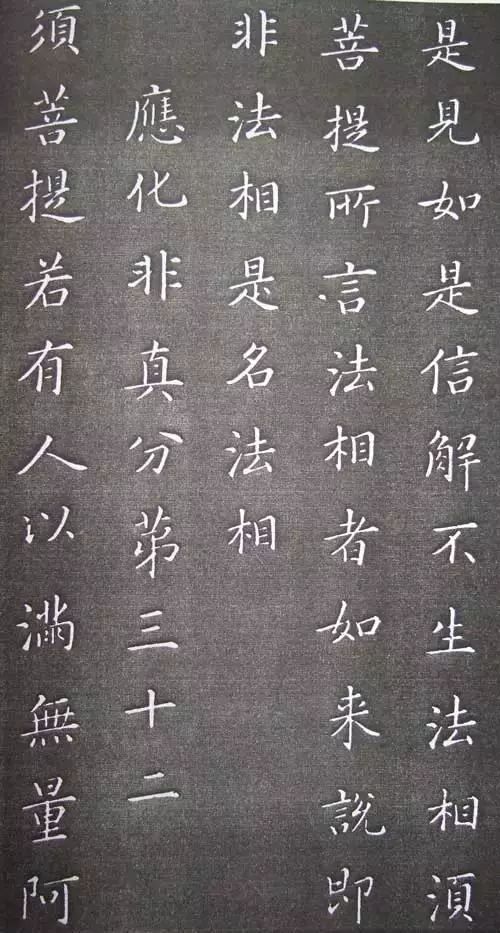 是見如是信解不生法相須
菩提所言法相者如来說即
非法相是名法相
應化非真分苐三十二
須菩提若有人以滿無量阿